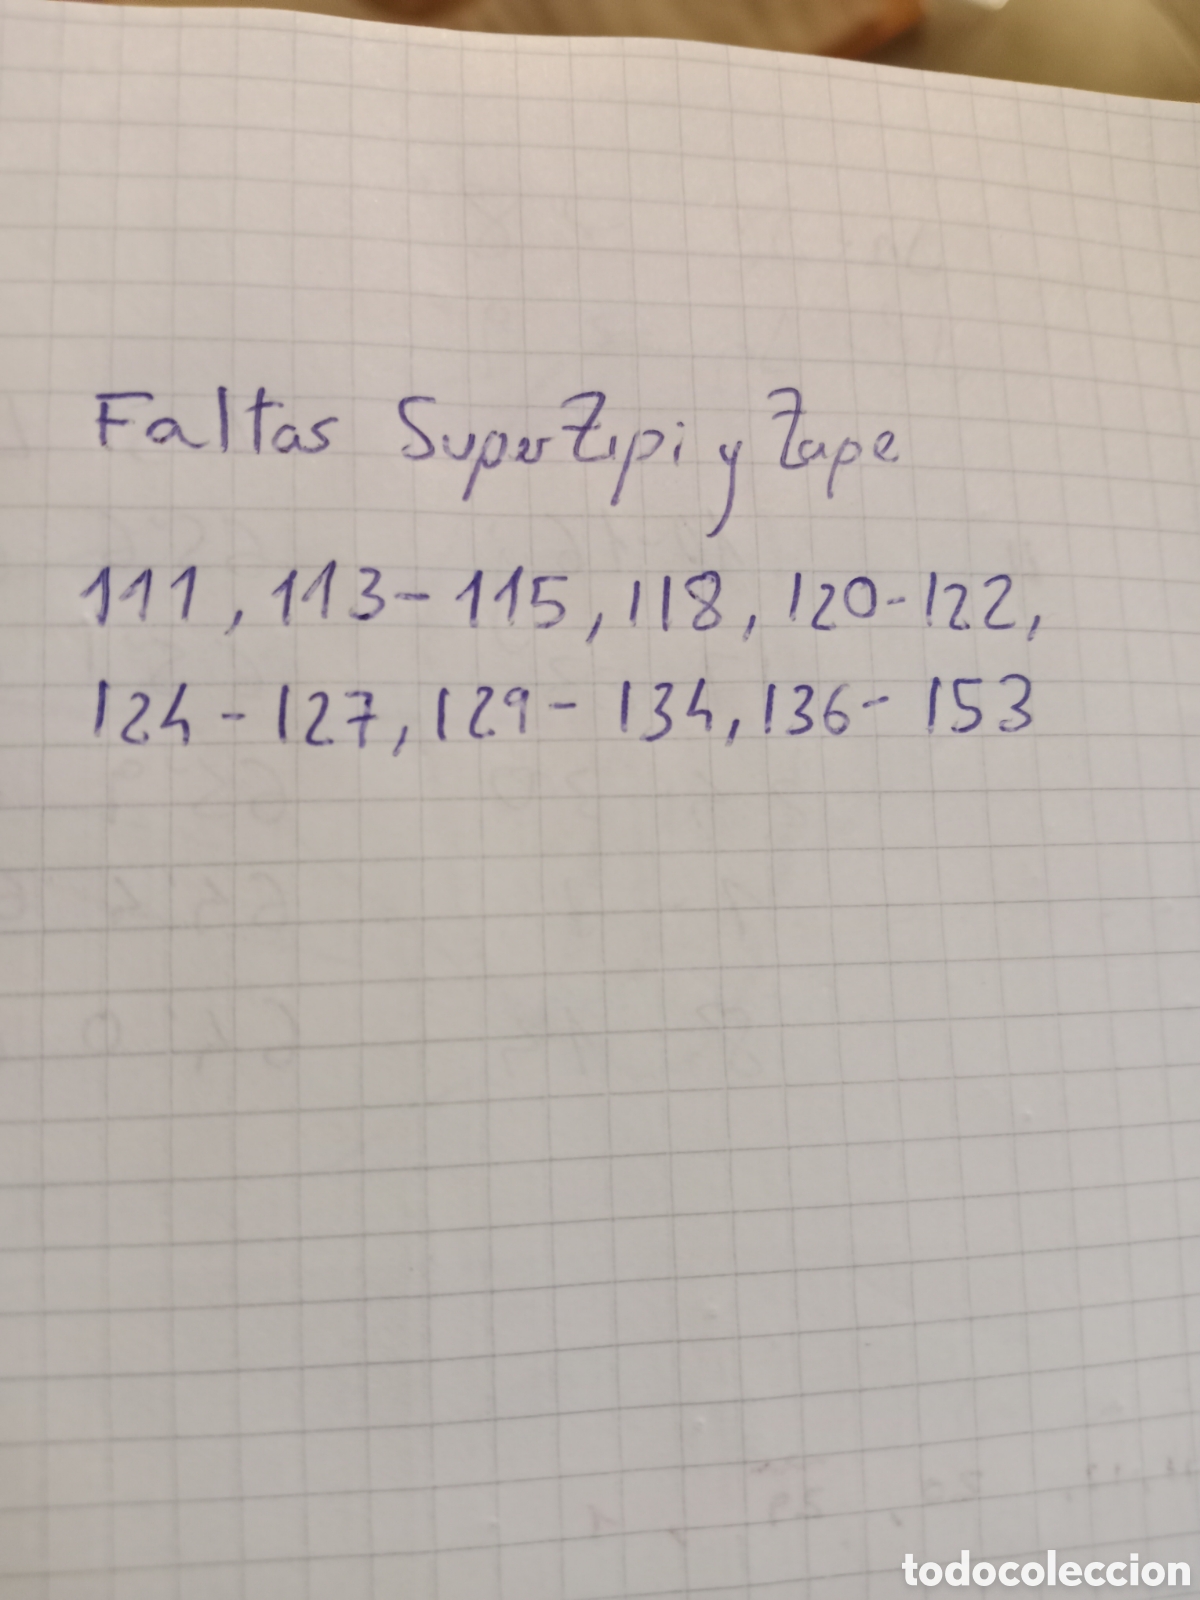 Faltas Super Zipi y Zape
111, 113-115, 118, 120-122,
124-127, 129-134, 136-153
todocoleccion